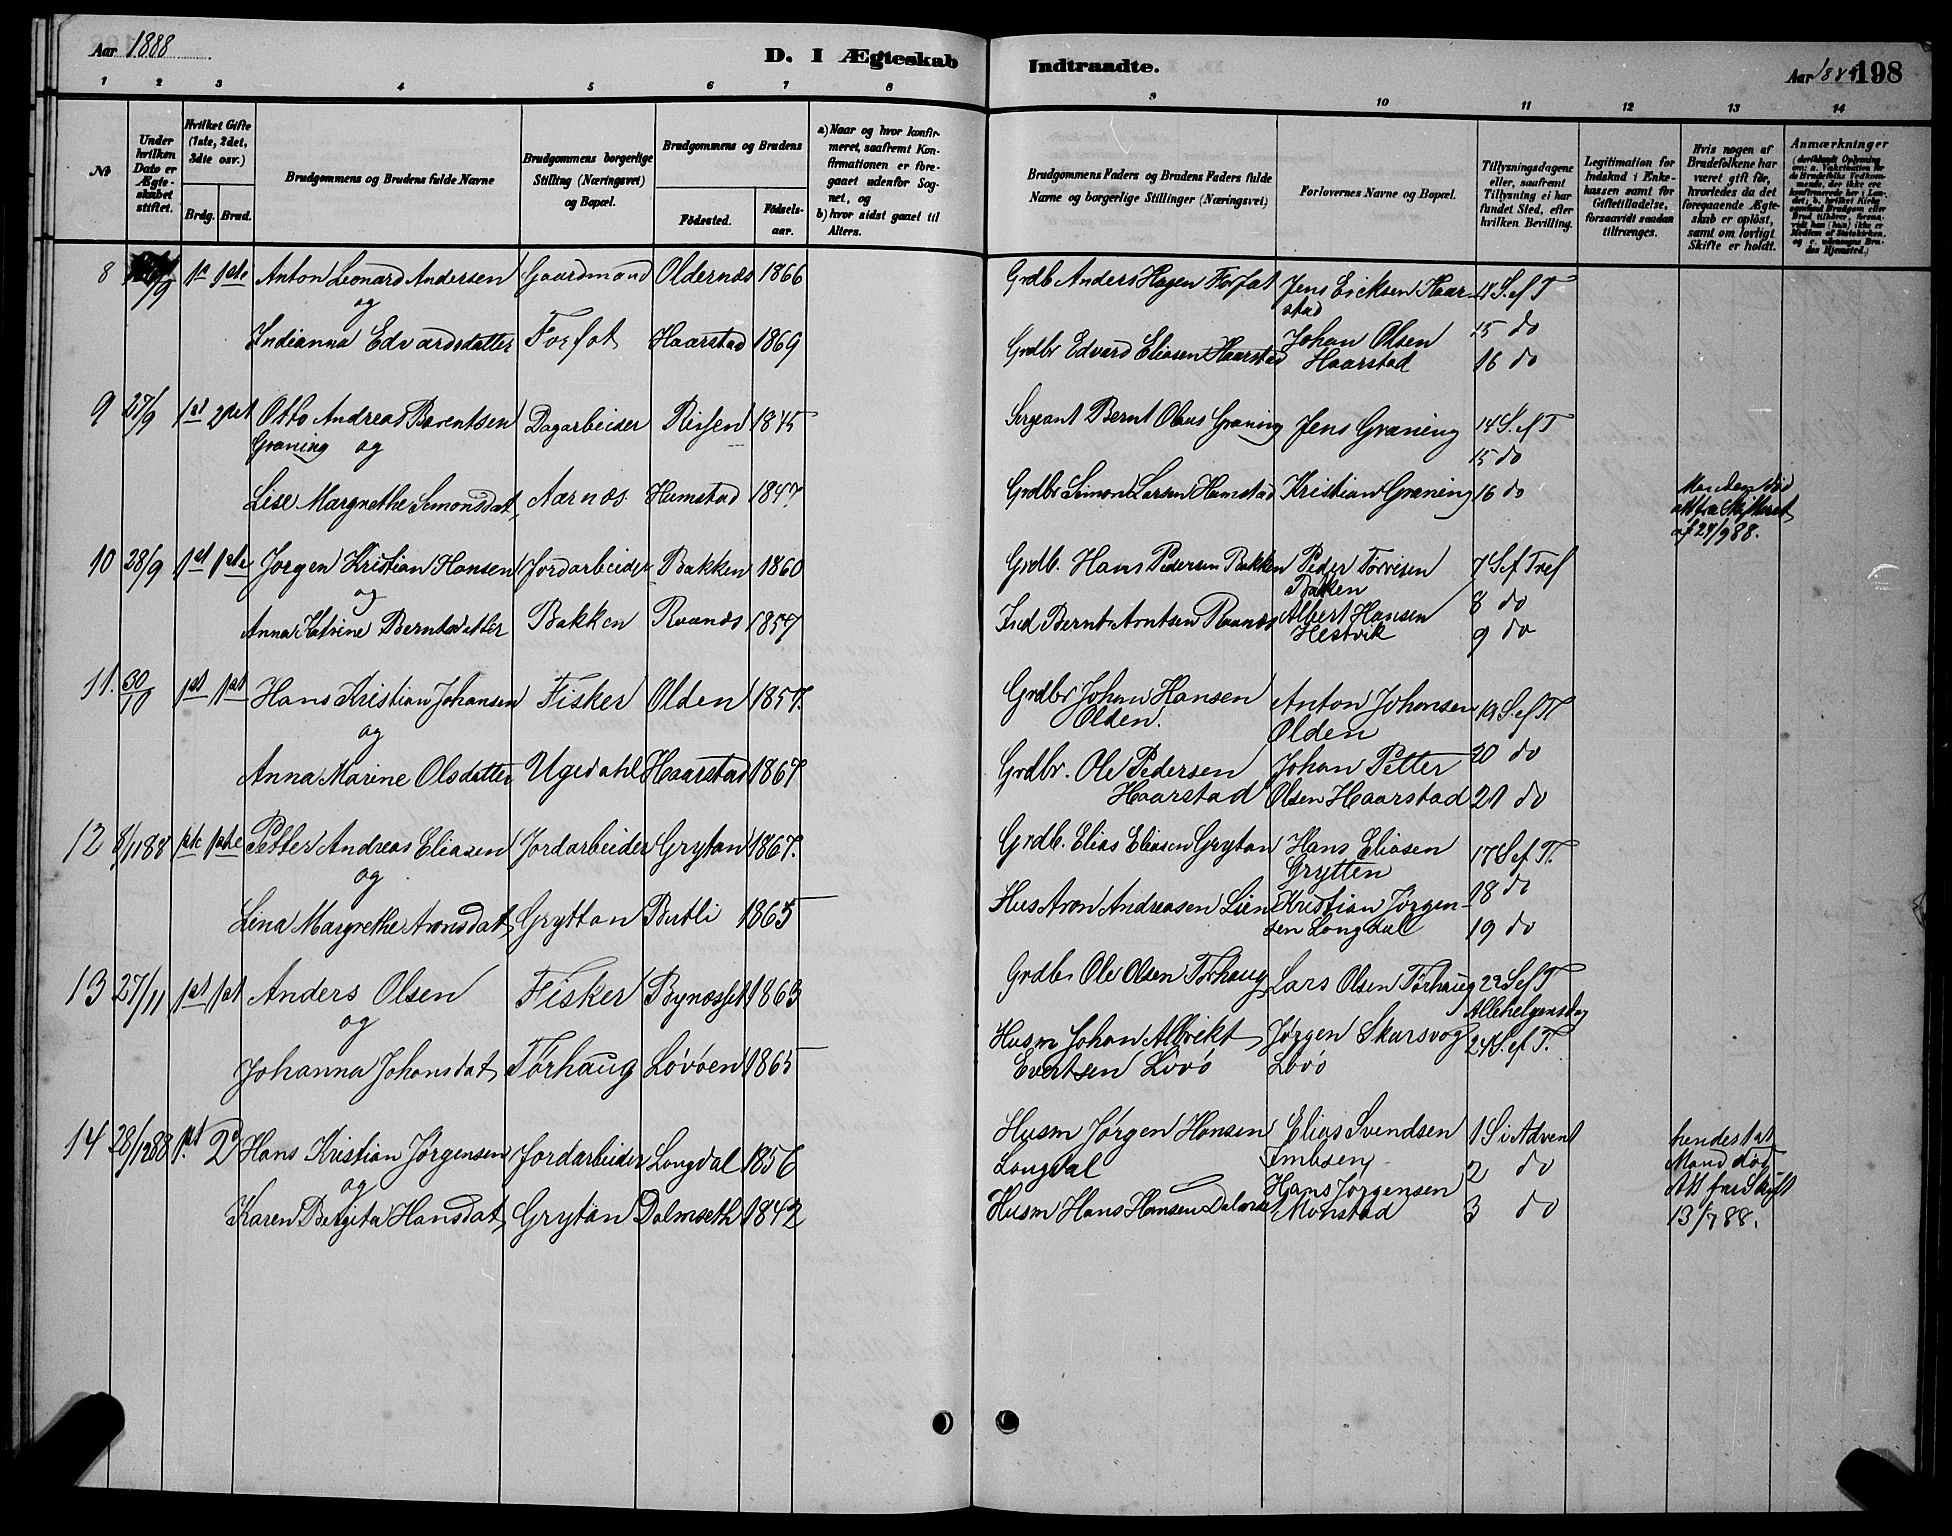 Aar 1888
D. I Ægteskab Indtraadte.
Aar 188 198
1 2 3 4 5 6 7 8 9 10 11 12 13 14
№
Under hvilken Dato er Ægteskabet stiftet.
Hvilket Gifte (1ste, 2det, 3dte osv.)
Brdg. Brud.
Brudgommens og Brudens fulde Navne
Brudgommens borgerlige Stilling (Næringsvei) og Bopæl.
Brudgommens og Brudens
Födested. Födselsaar.
a) Naar og hvor konfirmeret, saafremt Konfirmationen er foregaaet udenfor Sognet, og
b) hvor sidst gaaet til Alters.
Brudgommens Faders og Brudens Faders fulde Navne og borgerlige Stillinger (Næringsvei)
Forlovernes Navne og Bopæl.
Tillysningsdagene eller, saafremt Tillysning ei har fundet Sted, efter hvilken Bevilling.
Legitimation for Indskud i Enkekassen samt for Giftetilladelse, forsaavidt saadan tiltrænges.
Hvis nogen af Brudefolkene har været gift för, hvorledes da det foregaaende Ægteskab er oplöst, samt om lovligt Skifte er holdt.
Anmærkninger
8 /9 1ste Anton Leonard Andersen Gaardmand Oldernæs 1866 Grdb Anders Hagen Forfot Jens Eicksen Haarstad 14 S. ef T
og
15 do
Indianna Edvardsdatter Forfot Haarstad 1869 Grdbr Edvard Eliasen Haarstad Johan Olsen Haarstad 16 do
9 27/9 1st 2det Otto Andreas Berentsen Græning Dagarbeider Reisen 1845 Sergeant Bernt Olaus Græning Jens Græning 14 S. ef T
og
15 do
Lise Margrethe Simonsdat Aarnæs Humstad 1847 Grdbr Simon Larsen Humstad Kristian Græning 16 do Manden død
af 24/9 88.
10 28/9 1st 1ste Jørgen Kristian Hansen Jordarbeider Bakken 1860 Grdb. Hans Pedersen Bakken Peder Tørrisen Bakken 7 S ef Tref
og
8 do
Anna Katrine Berntsdatter Bakken Raanæs 1857 Ind Bernt Arntsen Raanæs Albert Hansen Hestvik 9 do
11. 30/10 1st 1st Hans Kristian Johansen Fisker Olden 1857. Grdbr Johan Hansen Olden. Anton Johansen Olden 19 S. ef Tr
og
20 do
Anna Marine Olsdatter Ugedahl Haarstad 1867 Grdbr. Ole Pedersen Haarstad Johan Petter Olsen Haarstad 21 do
12 8/11 88 1ste 1ste Petter Andreas Eliasen Jordarbeider Grytan 1867. Grdb. Elias Eliasen Grytan Hans Eliasen Grytten 17 S ef Tr.
og
18 do
Lina Margrethe Aronsdat Gryttan Butli 1865 Hus Aron Andreasen Lien Kristian Jørgensen Longdal 19 do
13 27/11 1st 1st Anders Olsen Fisker Bynesset 1863 Grdb. Ole Olsen Tørhaug Lars Olsen Tørhaug 22 S ef T
og
Allehelgensdag
Johanna Johansdat Tørhaug Løvøen 1865 Husm Johan Albrikt Evertsen Løvø Jørgen Skarsvog Løvø 24 S. ef T.
14 28/12 88 1st 2d Hans Kristian Jørgensen Jordarbeider Longdal 1856 Husm Jørgen Hansen Longdal Elias Svendsen 1 S i Advent hendes 1st
og
2 do Mand død
Karen Bergita Hansdat Grytan Dalmseth 1842 Husm Hans Hansen Hans Jørgensen Monstad 3 do
13/7 88.